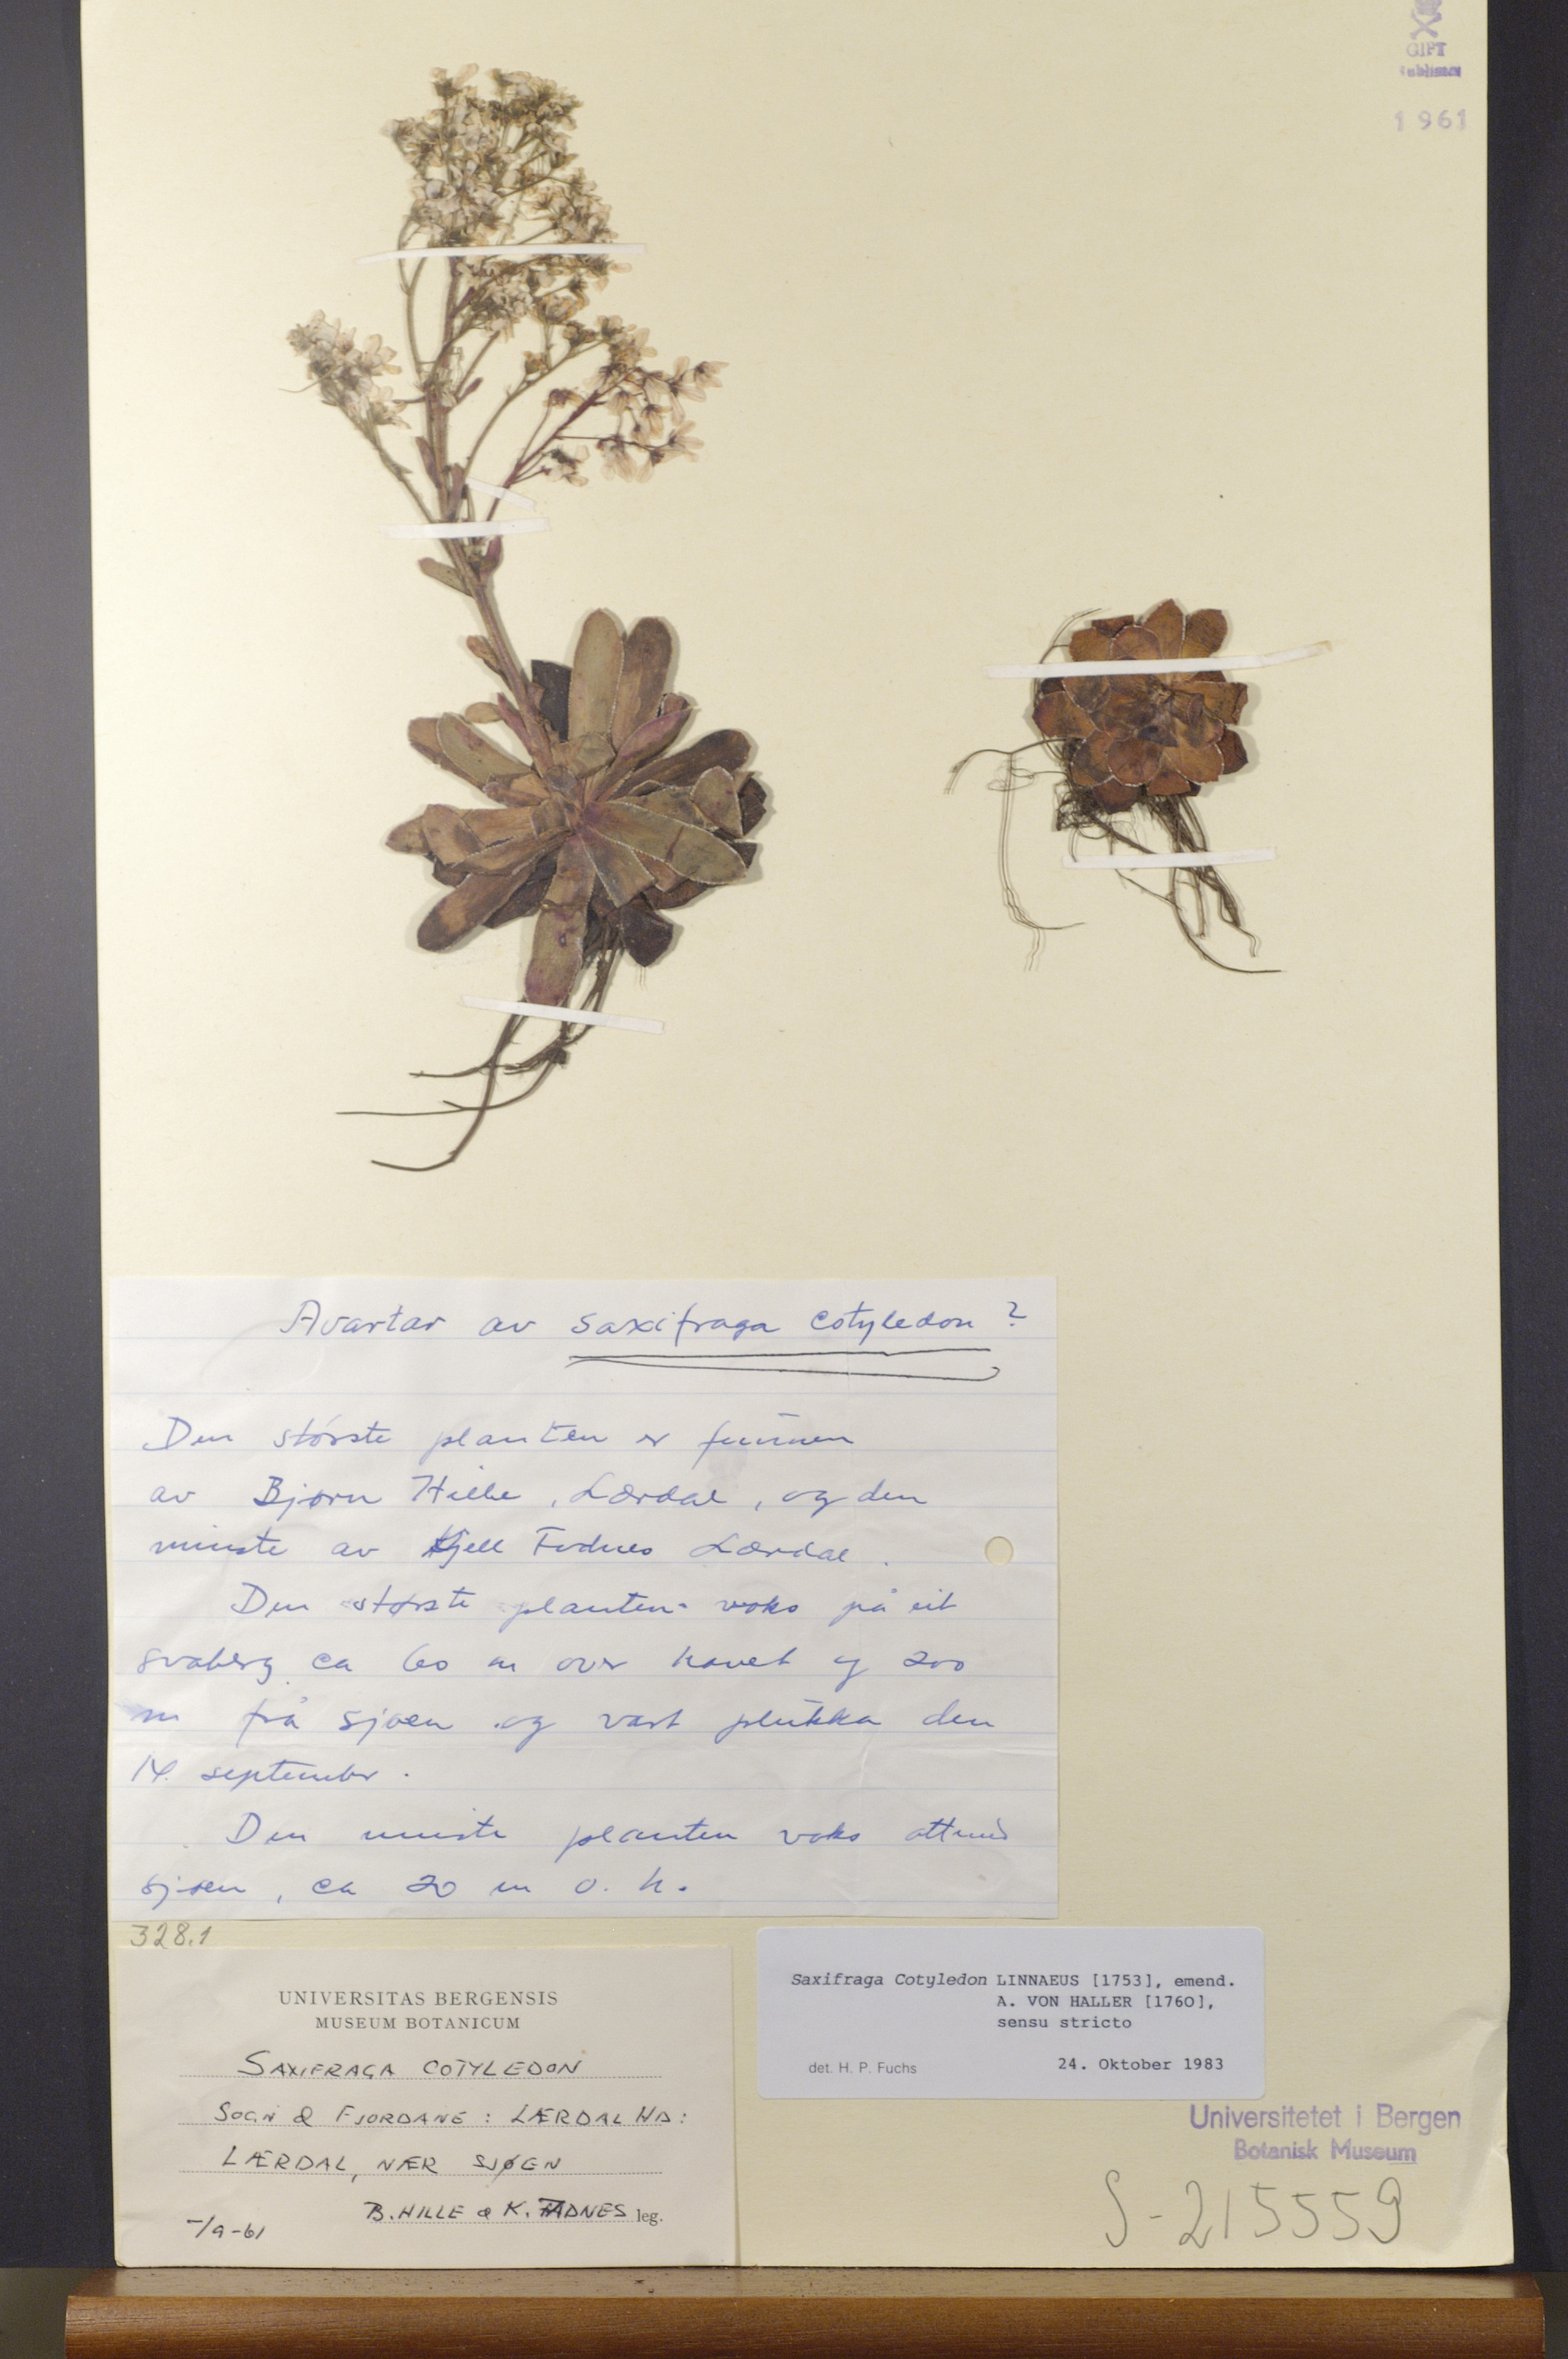 GIFT
1961
Avartar av Saxifraga cotyledon ?
Den største planten er funnen
av Bjørn Hille, Lærdal, og den
minste av Kjell Fodnes Lærdal.
Den største planten voks på eit
svaberg ca 60 m over havet og 200
m frå sjøen og vart plukka den
14. september.
Den minste planten voks attmed
sjøen, ca 20 m o. h.
328.1
UNIVERSITAS BERGENSIS
MUSEUM BOTANICUM
SAXIFRAGA COTYLEDON
SOGN & FJORDANE : LÆRDAL HD :
LÆRDAL, NÆR SJØEN
B. HILLE & K. FADNES leg.
-/9-61
Saxifraga Cotyledon LINNAEUS [1753], emend.
A. VON HALLER [1760],
sensu stricto
det. H. P. Fuchs 24. Oktober 1983
Universitetet i Bergen
Botanisk Museum
S-215559